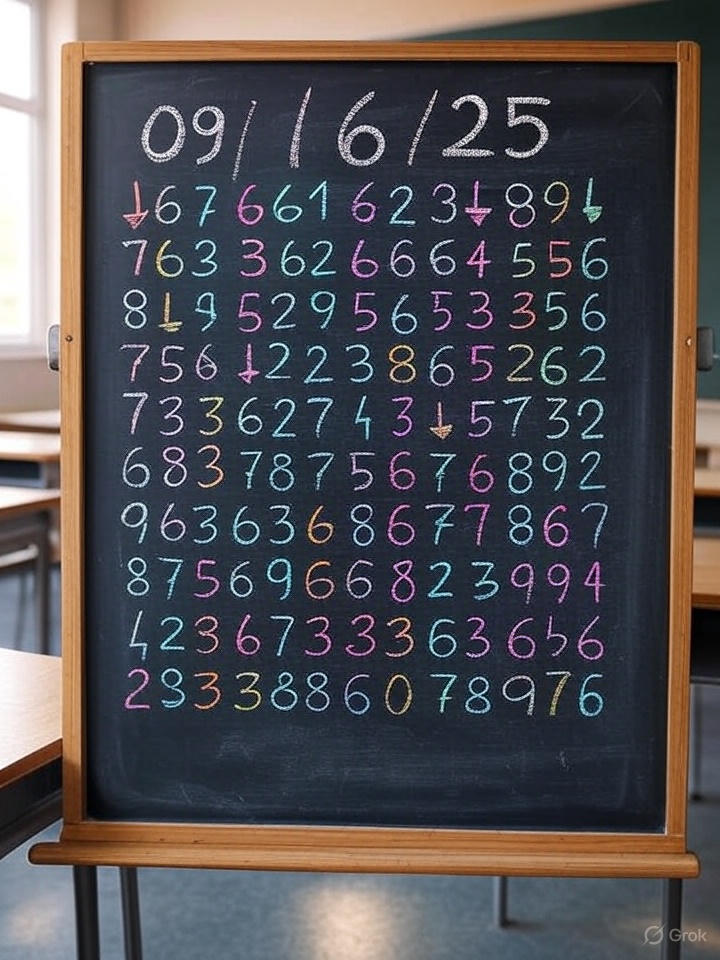 09/16/25
↓67661623↓89↓
7633626664556
8↓95295653356
756↓223865262
73362743↓5732
6837875676892
9636366867786​7
8756966823994
4236733363656
2833886078976
Grok